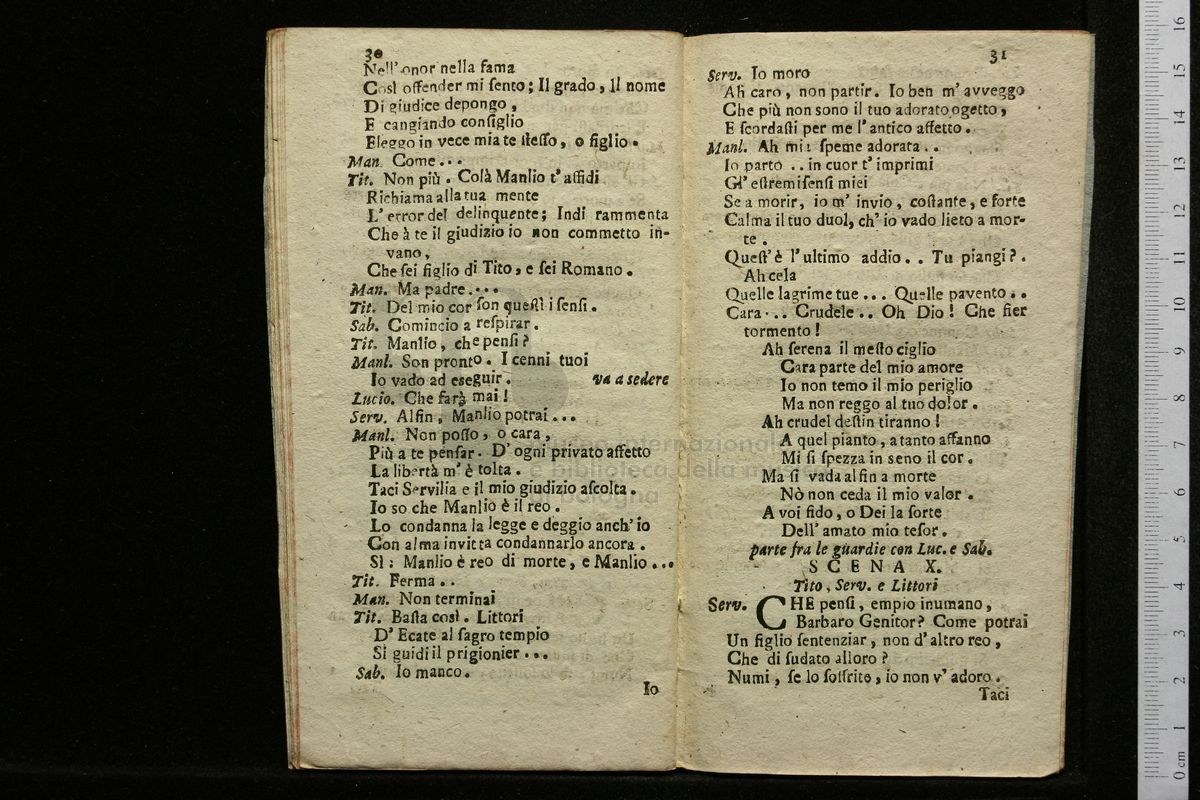 30
Nell' onor nella fama
Così offender mi ſento; Il grado, Il nome
Di giudice depongo,
E cangiando conſiglio
Eleggo in vece mia te ſteſſo, o figlio.
Man. Come...
Tit. Non più. Colà Manlio t' aſſidi
Richiama alla tua mente
L' error del delinquente; Indi rammenta
Che à te il giudizio io non commetto in-
vano,
Che ſei figlio di Tito, e ſei Romano.
Man. Ma padre....
Tit. Del mio cor ſon queſti i ſenſi.
Sab. Comincio a reſpirar.
Tit. Manlio, che penſi?
Manl. Son pronto. I cenni tuoi
Io vado ad eseguir. va a sedere
Lucio. Che farà mai!
Serv. Alfin, Manlio potrai...
Manl. Non poſſo, o cara,
Più a te penſar. D' ogni privato affetto
La libertà m' è tolta.
Taci Servilia e il mio giudizio aſcolta.
Io so che Manlio è il reo.
Lo condanna la legge e deggio anch' io
Con alma invitta condannarlo ancora.
Sì: Manlio è reo di morte, e Manlio...
Tit. Ferma..
Man. Non terminai
Tit. Baſta così. Littori
D' Ecate al ſagro tempio
Si guidi il prigionier...
Sab. Io manco.
Io
31
Serv. Io moro
Ah caro, non partir. Io ben m' avveggo
Che più non sono il tuo adorato ogetto,
E ſcordaſti per me l' antico affetto.
Manl. Ah mia ſpeme adorata..
Io parto.. in cuor t' imprimi
Gl' eſtremi ſenſi miei
Se a morir, io m' invio, coſtante, e forte
Calma il tuo duol, ch' io vado lieto a mor-
te.
Queſt' è l' ultimo addio.. Tu piangi?.
Ah cela
Quelle lagrime tue... Quelle pavento..
Cara... Crudele.. Oh Dio! Che fier
tormento!
Ah ſerena il meſto ciglio
Cara parte del mio amore
Io non temo il mio periglio
Ma non reggo al tuo dolor.
Ah crudel deſtin tiranno!
A quel pianto, a tanto affanno
Mi ſi ſpezza in seno il cor.
Ma ſi vada alfin a morte
Nò non ceda il mio valor.
A voi fido, o Dei la ſorte
Dell' amato mio teſor.
parte fra le guardie con Luc. e Sab.
SCENA X.
Tito, Serv. e Littori
Serv. CHE penſi, empio inumano,
Barbaro Genitor? Come potrai
Un figlio ſentenziar, non d' altro reo,
Che di ſudato alloro?
Numi, ſe lo ſoffrite, io non v' adoro.
Taci
museo internazionale
e biblioteca della musica
di bologna
0 cm 1 2 3 4 5 6 7 8 9 10 11 12 13 14 15 16